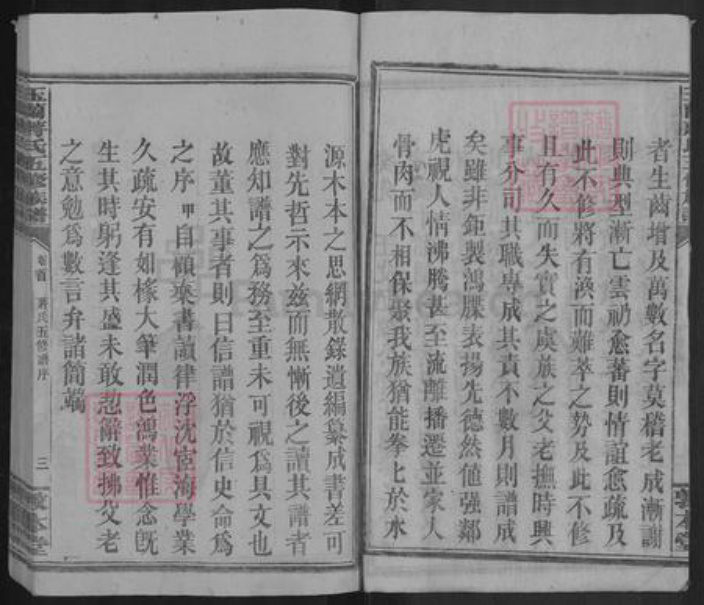 者生齒增及萬數名字莫稽老成漸謝
則典型漸亡雲礽愈蕃則情誼愈疏及
此不修將有渙而難萃之勢及此不修
且有久而失實之虞族之父老撫時興
事分司其職專成其責不數月則譜成
矣雖非鉅製鴻牒表揚先德然値强鄰
虎視人情沸騰甚至流離播遷並家人
骨肉而不相保聚我族猶能拳上於水
源木本之思網散錄遺編纂成書差可
對先哲示來兹而無慚後之讀其譜者
應知譜之爲務至重未可視爲具文也
故董其事者則曰信譜猶於信史命爲
之序甲自顧棄書讀律浮沈宦海學業
久疏安有如椽大筆潤色鴻業惟念旣
生其時躬逢其盛未敢恝辭致拂父老
之意勉爲數言弁諸簡端
玉蘭蔣氏五修族譜
卷首
蔣氏五修譜序
三
敦本堂